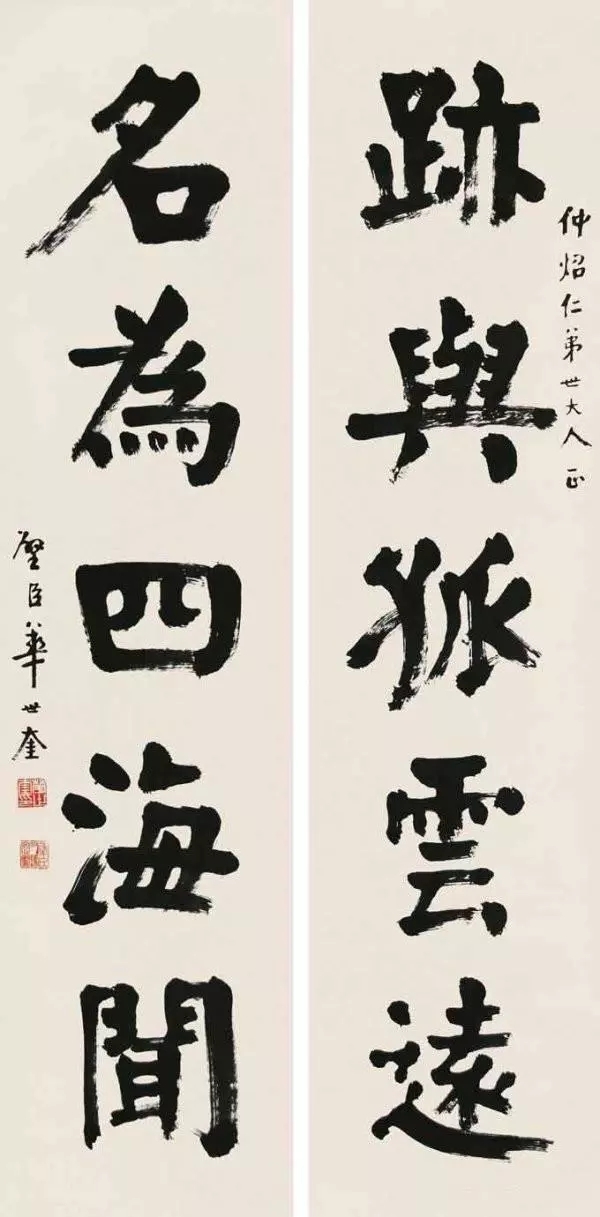 仲炤仁弟世大人正
跡與孤雲遠
名為四海聞
璧臣華世奎